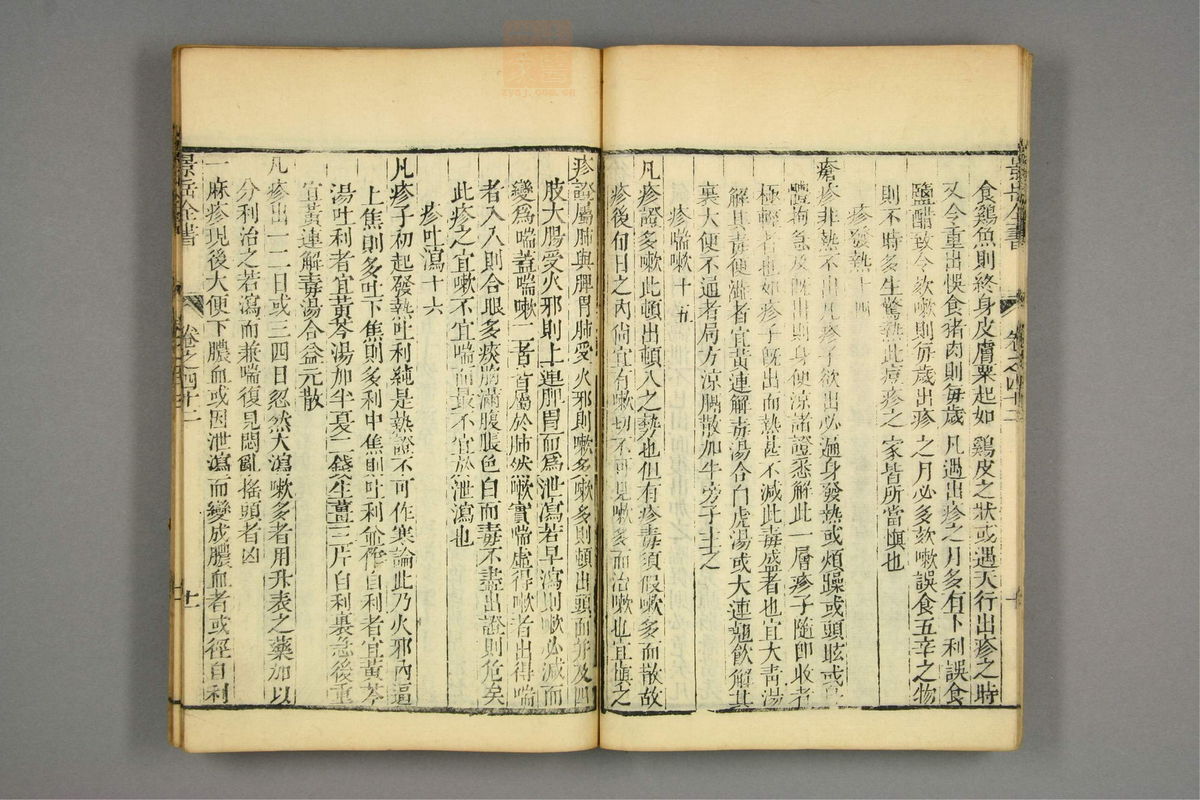 景岳全書 卷之四十三
食鷄魚則終身皮膚粟起如鷄皮之狀或遇天行出疹之時
又令重出悞食猪肉則每歲凡遇出疹之月多有下利誤食
鹽醋致令欬嗽則每歲出疹之月必多欬嗽誤食五辛之物
則不時多生驚熱此痘疹之家皆所當慎也
疹發熱十四
瘡疹非熱不出凡疹子欲出必遍身發熱或煩躁或頭眩或身
體拘急及既出則身便涼諸證悉解此一層疹子隨即收者
極輕者也如疹子既出而熱甚不減此毒盛者也宜大青湯
解其毒便澁者宜黃連解毒湯合白虎湯或大連翹飲解其
裏大便不通者局方涼膈散加牛旁子主之
疹喘嗽十五
凡疹證多嗽此頓出頓入之勢也但有疹毒須假嗽多而散故
疹後旬日之內尚宜有嗽切不可見嗽多而治嗽也宜慎之
疹證屬肺與脾胃肺受火邪則嗽多嗽多則頓出頭面并及四
肢大腸受火邪則上連脾胃而爲泄瀉若早瀉則嗽必減而
變爲喘蓋喘嗽二者皆屬於肺然嗽實喘虛得嗽者出得喘
者入入則合眼多痰胸滿腹脹色白而毒不盡出證則危矣
此疹之宜嗽不宜喘而最不宜於泄瀉也
疹吐瀉十六
凡疹子初起發熱吐利純是熱證不可作寒論此乃火邪內逼
上焦則多吐下焦則多利中焦則吐利並作自利者宜黃芩
湯吐利者宜黃芩湯加半夏二錢生薑三片自利裏急後重
宜黃連解毒湯合益元散
凡疹出一二日或三四日忽然大瀉嗽多者用升表之藥加以
分利治之若瀉而兼喘復見悶亂搖頭者凶
一麻疹現後大便下膿血或因泄瀉而變成膿血者或徑自利
景岳全書 卷之四十三 廿一